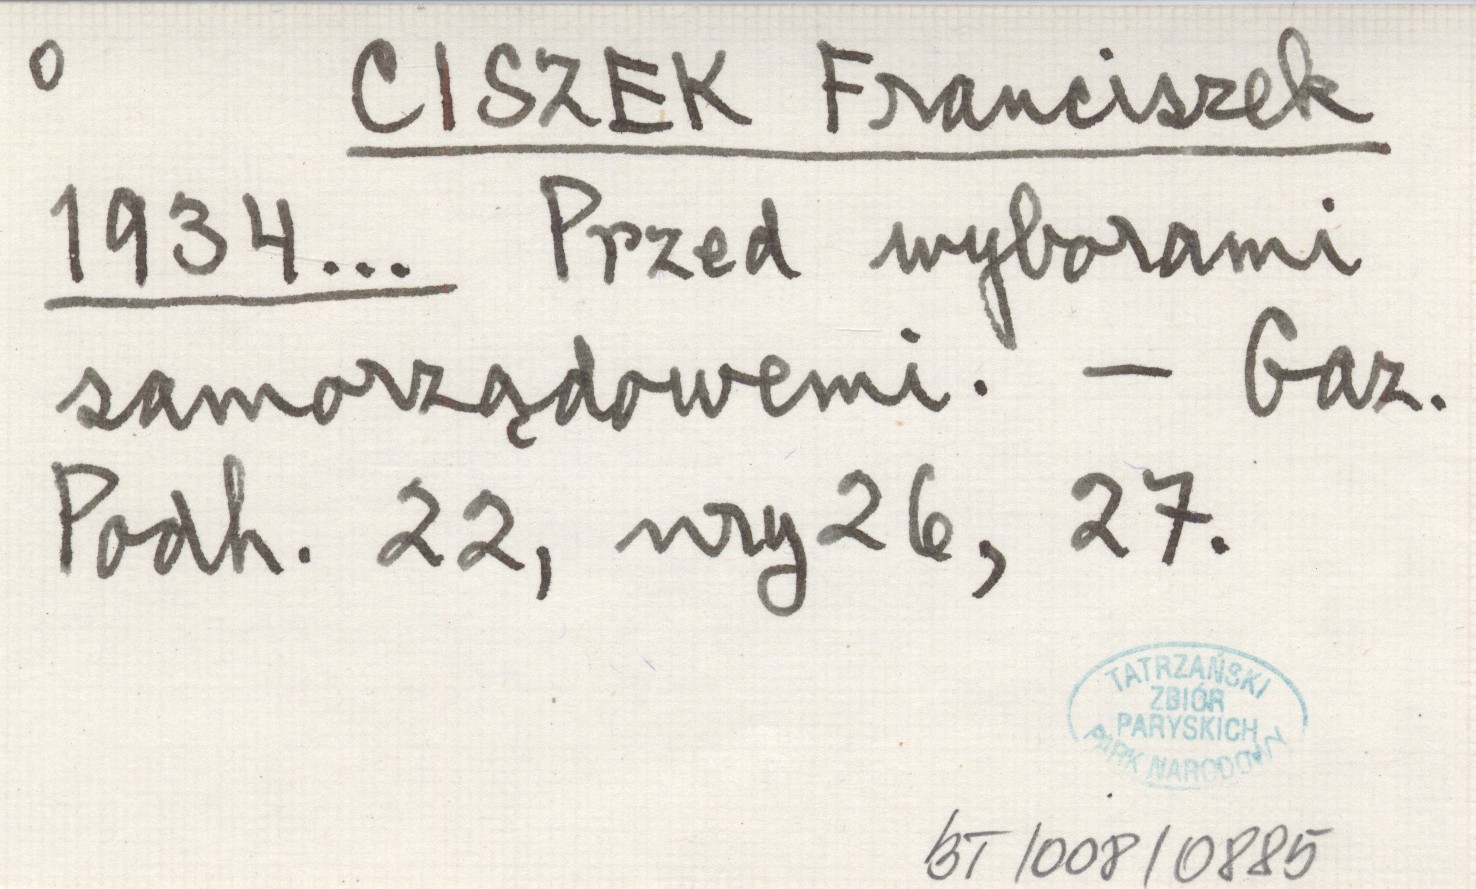 o CISZEK Franciszek
1934... Przed wyborami
samorządowemi. — Gaz.
Podh. 22, nry 26, 27.
TATRZAŃSKI
ZBIÓR
PARYSKICH
PARK NARODOWY
BT/008/0885